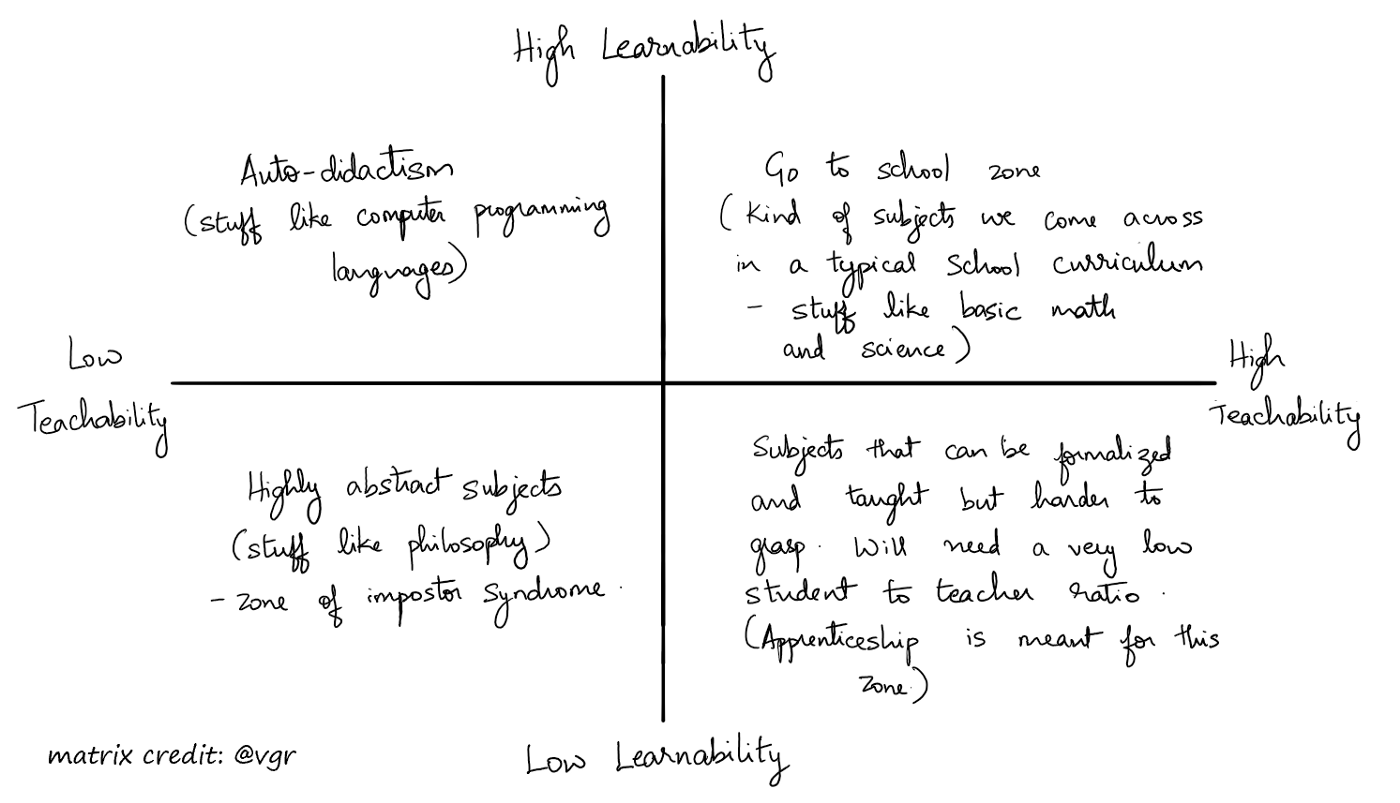 High Learnability
Auto-didactism
(stuff like computer programming
languages)
Go to school zone
(Kind of subjects we come across
in a typical school curriculum
- stuff like basic math
and science)
Low
Teachability
High
Teachability
Highly abstract subjects
(stuff like philosophy)
- zone of impostor syndrome.
Subjects that can be formalized
and taught but harder to
grasp. Will need a very low
student to teacher ratio.
(Apprenticeship is meant for this
zone.)
matrix credit: @vgr
Low Learnability